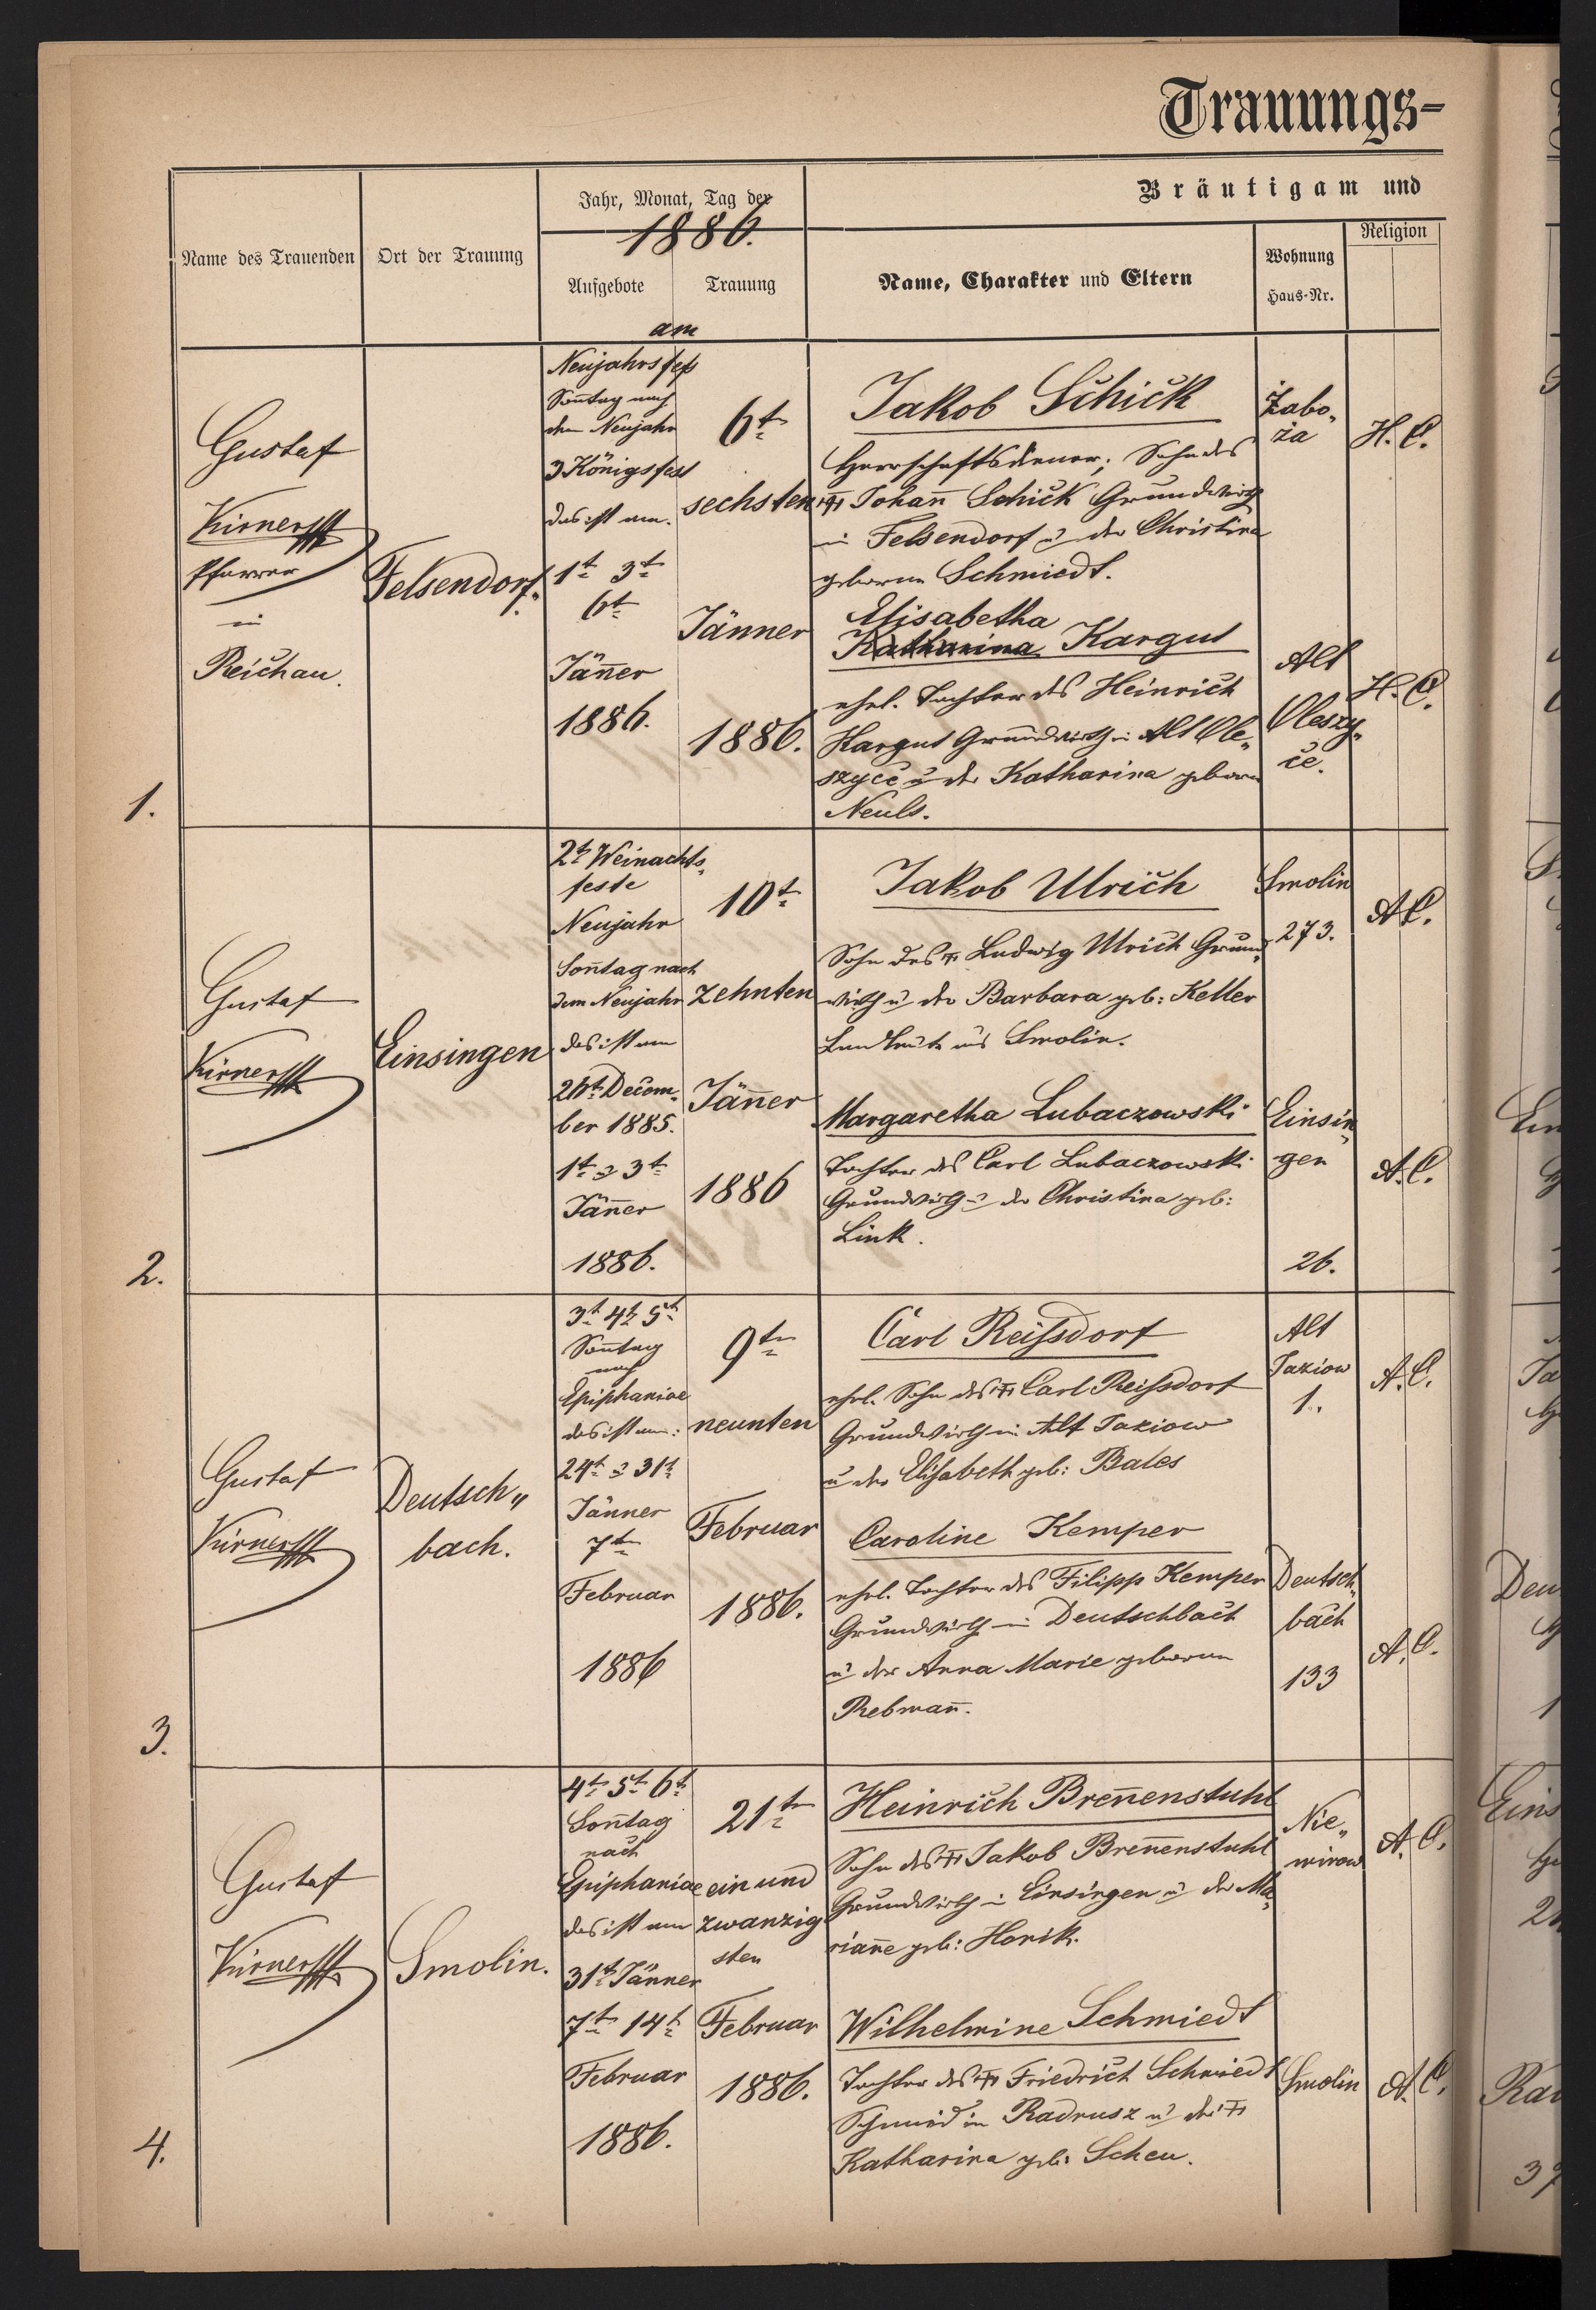 Trauungs-
Bräutigam und
Jahr, Monat, Tag der
1886.
Name des Trauenden
Ort der Trauung
Aufgebote
Trauung
am
Name, Charakter und Eltern
Wohnung
Haus-Nr.
Religion
1.
Gustaf
Kirner
Pfarrer
in
Reichau.
Felsendorf.
Neujahrsfest
Sontag nach
dem Neujahr
3 Königsfest
das ist am.
1t 3t
6t
Jäner
1886.
6t
sechsten
Jänner
1886.
Jakob Schick
Herrschaftsdiener; Sohn des
Johan Schick Grundwirth
in Felsendorf u der Christina
geborne Schmiedt.
Elisabetha
Katharina Kargut
ehel. Tochter des Heinrich
Kargut Grundwirth in Alt Ole„
szyce u der Katharina geborne
Neuls.
Żabo„
ża
H. C.
Alt
Oleszy„
ce.
H. C.
2.
Gustaf
Kirner
Einsingen
2t Weinachts„
feste
Neujahr
Sontag nach
dem Neujahr
das ist am
26t Decem„
ber 1885.
1t u 3t
Jäner
1886.
10t
zehnten
Jäner
1886
Jakob Ulrich
Sohn des Ludwig Ulrich Grund„
wirth u der Barbara geb: Keller
Landleute aus Smolin.
Margaretha Lubaczowski
Tochter des Carl Lubaczowski
Grundwirth u der Christina geb:
Link.
Smolin
273.
A. C.
Einsin„
gen
26.
A. C.
3.
Gustaf
Kirner
Deutsch„
bach.
3t 4t 5t
Sontag
nach
Epiphaniae
das ist am:
24t u 31t
Jänner
7t
Februar
1886
9t
neunten
Februar
1886.
Carl Reissdorf
ehel. Sohn des Carl Reissdorf
Grundwirth in Alt Jaziow
u der Elisabeth geb: Bales
Caroline Kemper
ehel. Tochter des Filipp Kemper
Grundwirth in Deutschbach
u der Anna Marie geborne
Rebman.
Alt
Jaziow
1.
A. C.
Deutsch„
bach
133
A. C.
4.
Gustaf
Kirner
Smolin.
4t 5t 6t
Sontag
nach
Epiphaniae
das ist am
31t Jänner
7t 14t
Februar
1886.
21t
ein und
zwanzig
sten
Februar
1886.
Heinrich Brenenstuhl
Sohn des Jakob Brenenstuhl
Grundwirth in Einsingen u der Ma„
riane geb: Horik.
Wilhelmine Schmiedt
Tochter des Friedrich Schmiedt
Schmid in Radrusz u der
Katharina geb: Scheu.
Nie„
mirow
A. C.
Smolin
A. C.